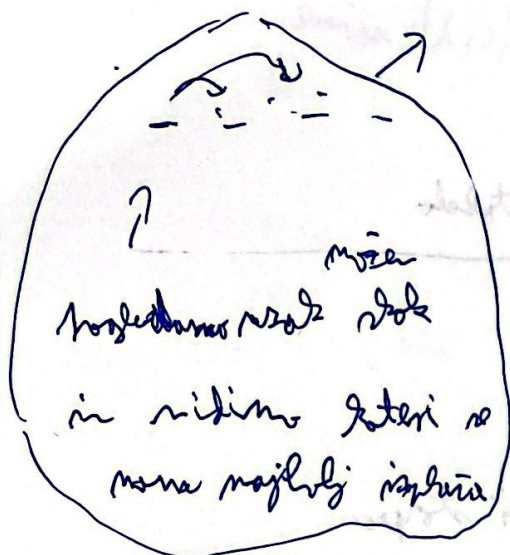 možen
pogledamo vsak skok
in vidimo kateri se
nama najbolj izplača